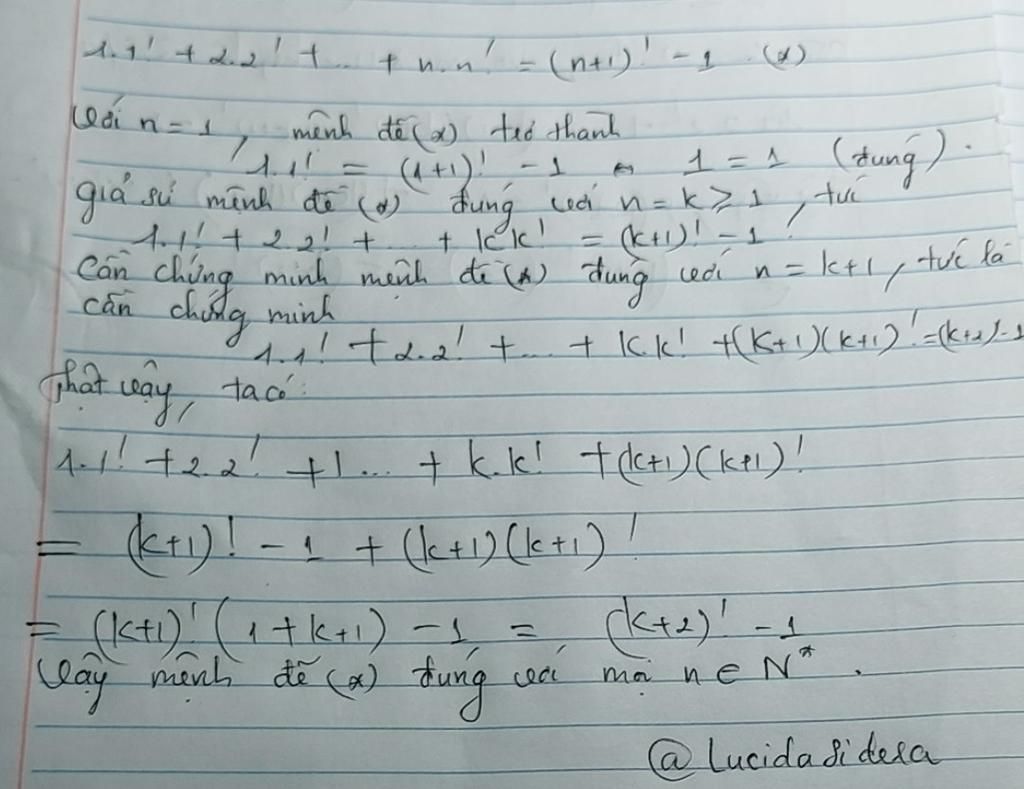 1.1! + 2.2! + ... + n.n! = (n+1)! - 1 (α)
Với n = 1, mệnh đề (α) trở thành
1.1! = (1+1)! - 1 ⇔ 1 = 1 (đúng).
giả sử mệnh đề (α) đúng với n = k ≥ 1, tức
1.1! + 2.2! + ... + k.k! = (k+1)! - 1
Cần chứng minh mệnh đề (α) đúng với n = k+1, tức là
cần chứng minh
1.1! + 2.2! + ... + k.k! + (k+1)(k+1)! = (k+2)! - 1
Thật vậy, ta có:
1.1! + 2.2! + ... + k.k! + (k+1)(k+1)!
= (k+1)! - 1 + (k+1)(k+1)!
= (k+1)! (1 + k+1) - 1 = (k+2)! - 1
Vậy mệnh đề (α) đúng với mọi n ∈ N*.
@Lucidasidera